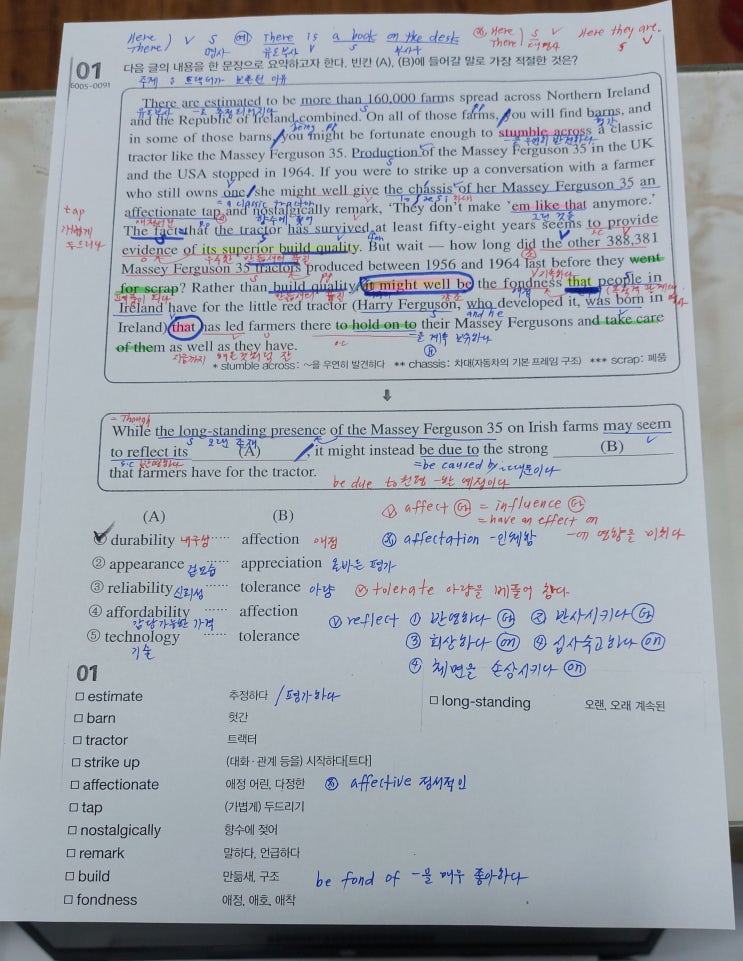 Here
There) V S 예) There is a book on the desk
Here
There) S V Here they are.
명사 유도부사 V S 부사구 대명사 S V
01 다음 글의 내용을 한 문장으로 요약하고자 한다. 빈칸 (A), (B)에 들어갈 말로 가장 적절한 것은?
6005-0091
There are estimated to be more than 160,000 farms spread across Northern Ireland
and the Republic of Ireland combined. On all of those farms, you will find barns, and
in some of those barns, you might be fortunate enough to stumble across a classic
tractor like the Massey Ferguson 35. Production of the Massey Ferguson 35 in the UK
and the USA stopped in 1964. If you were to strike up a conversation with a farmer
who still owns one, she might well give the chassis of her Massey Ferguson 35 an
= a classic tractor
affectionate tap and nostalgically remark, ‘They don’t make ’em like that anymore.’
tap
가볍게
두드리다
The fact that the tractor has survived at least fifty-eight years seems to provide
evidence of its superior build quality. But wait — how long did the other 388,381
Massey Ferguson 35 tractors produced between 1956 and 1964 last before they went
for scrap? Rather than build quality, it might well be the fondness that people in
Ireland have for the little red tractor (Harry Ferguson, who developed it, was born in
Ireland) that has led farmers there to hold on to their Massey Fergusons and take care
of them as well as they have.
* stumble across: ~을 우연히 발견하다 ** chassis: 차대(자동차의 기본 프레임 구조) *** scrap: 폐품
= Though
While the long-standing presence of the Massey Ferguson 35 on Irish farms may seem
to reflect its (A) , it might instead be due to the strong (B)
that farmers have for the tractor.
= be caused by
be due to 원형
(A) (B)
① durability 내구성 …… affection 애정
② appearance 겉모습 …… appreciation 올바른 평가
③ reliability 신뢰성 …… tolerance 아량
④ affordability …… affection
감당가능한 가격
⑤ technology …… tolerance
기술
affect = influence
= have an effect on
-에 영향을 미치다
affectation -인체함
tolerate 아량을 베풀어 참다
reflect ① 반영하다 ② 반사시키다
③ 회상하다 on ④ 심사숙고하다 on
④ 체면을 손상시키다 on
01
□ estimate 추정하다 / 평가하다
□ long-standing 오랜, 오래 계속된
□ barn 헛간
□ tractor 트랙터
□ strike up (대화·관계 등을) 시작하다[트다]
□ affectionate 애정 어린, 다정한 affective 정서적인
□ tap (가볍게) 두드리기
□ nostalgically 향수에 젖어
□ remark 말하다, 언급하다
□ build 만듦새, 구조 be fond of -을 매우 좋아하다
□ fondness 애정, 애호, 애착